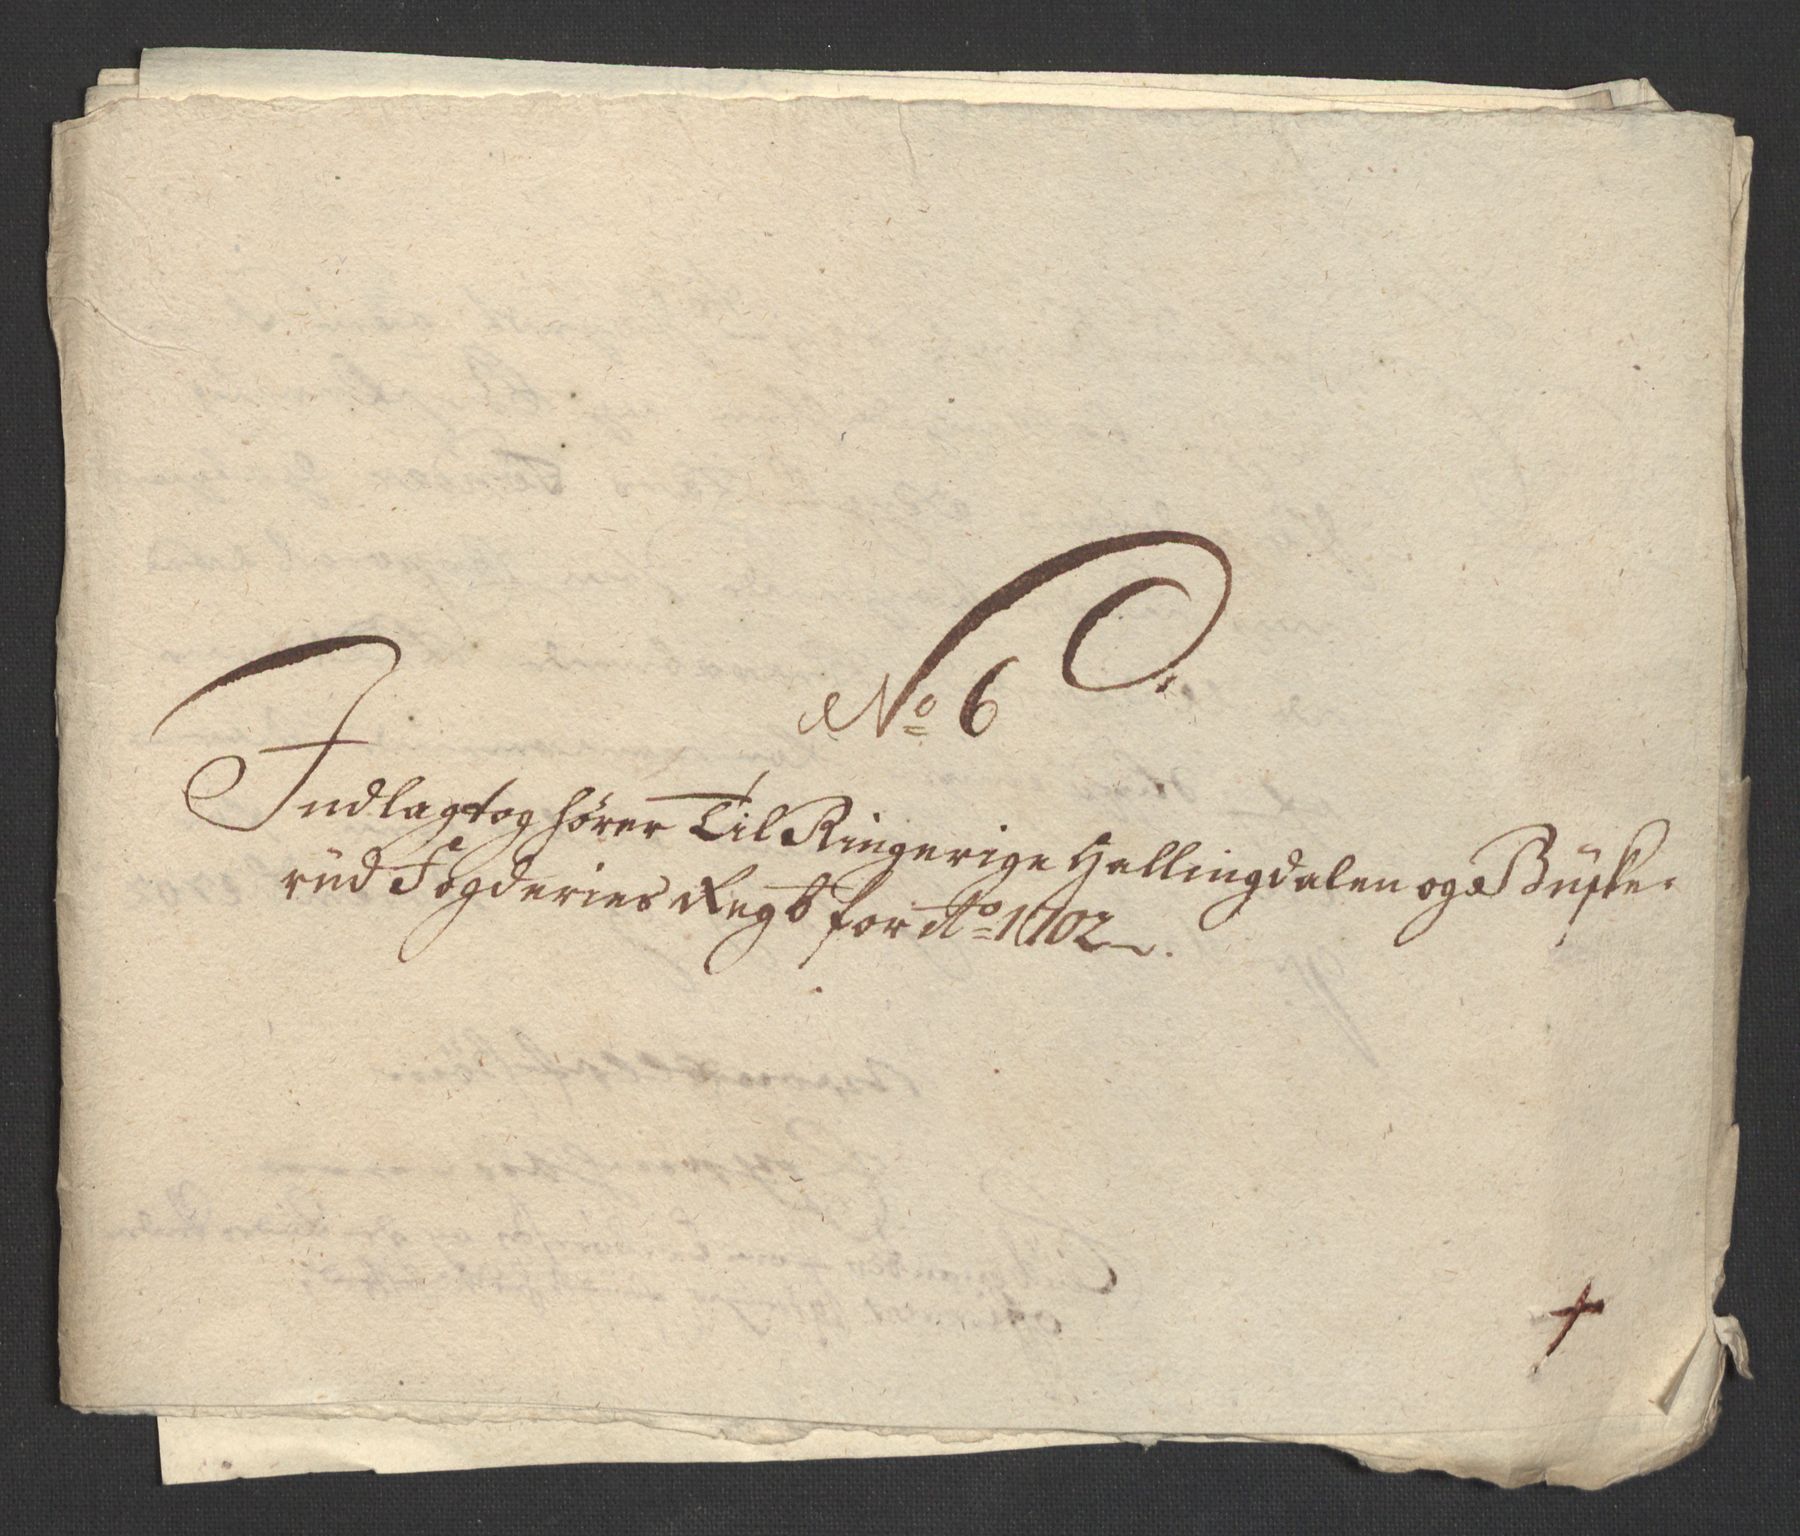 No 6
Indlagt og hører Til Ringerige Hallingdalen og Buske-
rŭd Fogderies Regb for Ao 1702